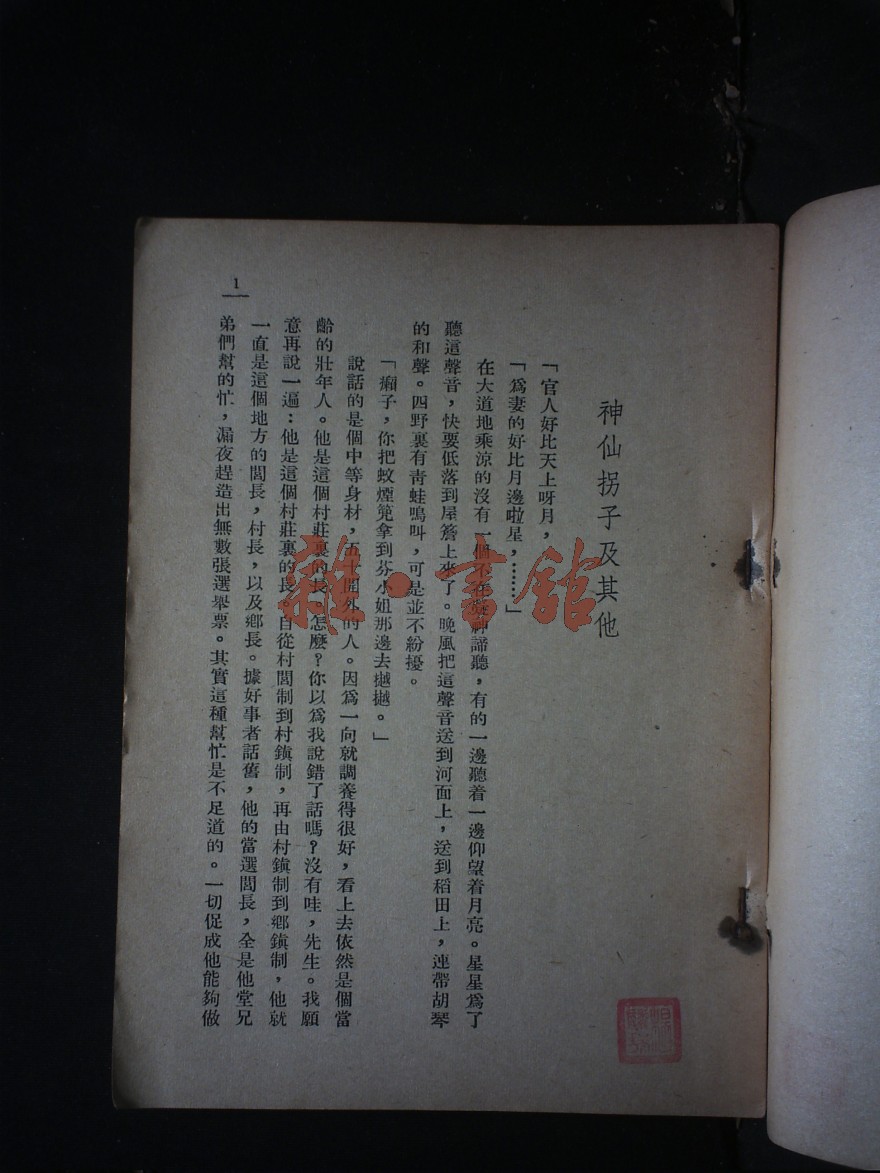 神仙拐子及其他
「官人好比天上呀月，
「爲妻的好比月邊啦星，……」
在大道地乘涼的沒有一個不在凝神諦聽，有的一邊聽着一邊仰望着月亮。星星爲了
聽這聲音，快要低落到屋簷上來了。晚風把這聲音送到河面上，送到稻田上，連帶胡琴
的和聲。四野裏有青蛙鳴叫，可是並不紛擾。
「癩子，你把蚊煙筅拿到芬小姐那邊去越越。」
說話的是個中等身材，五十開外的人。因爲一向就調養得很好，看上去依然是個當
齡的壯年人。他是這個村莊裏的長，怎麼？你以爲我說錯了話嗎？沒有哇，先生。我願
意再說一遍：他是這個村莊裏的長，自從村閭制到村鎭制，再由村鎭制到鄕鎭制，他就
一直是這個地方的閭長，村長，以及鄕長。據好事者話舊，他的當選閭長，全是他堂兄
弟們幫的忙，漏夜趕造出無數張選舉票。其實這種幫忙是不足道的。一切促成他能夠做
1
雜·書館